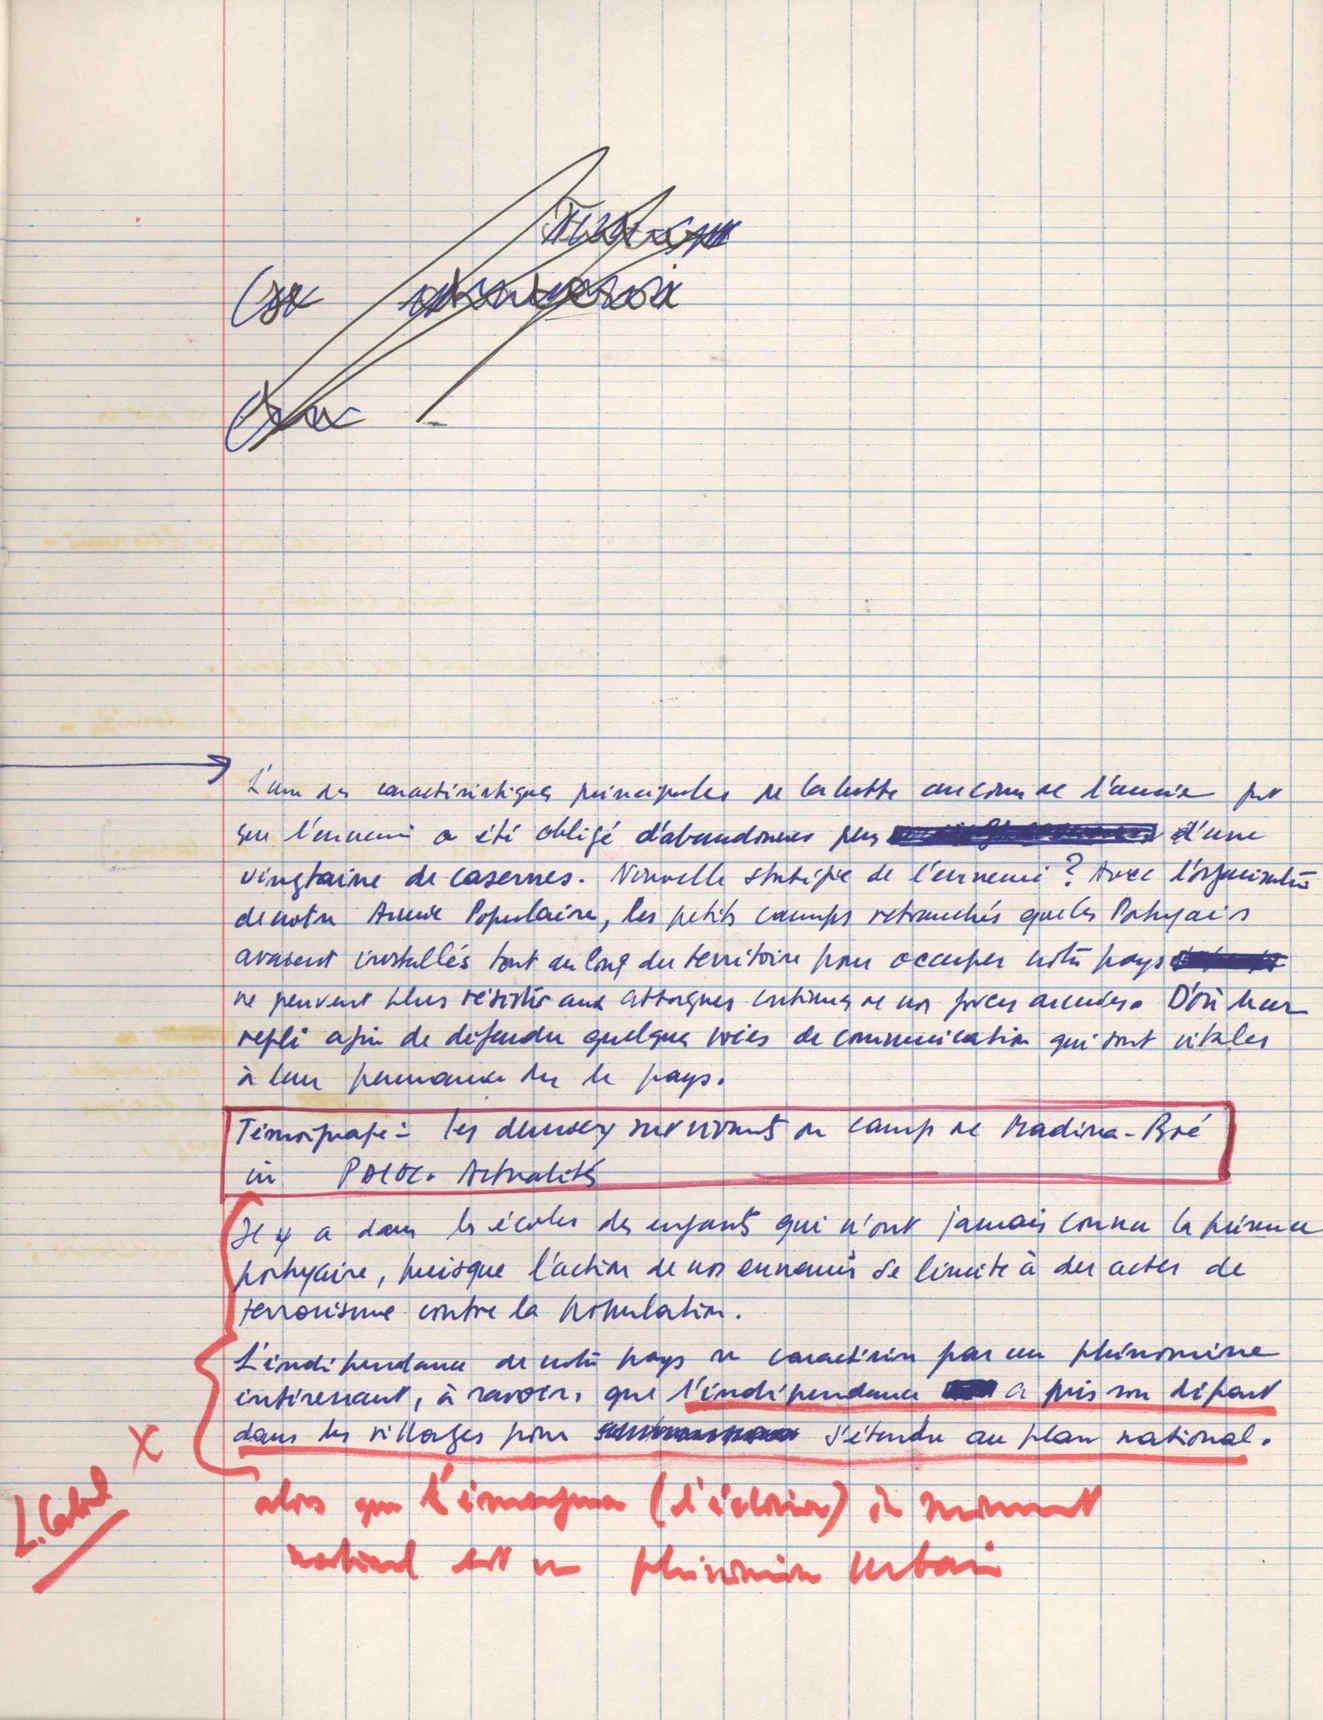 L'une des caractéristiques principales de la lutte au cours de l'année fut
que l'ennemi a été obligé d'abandonner plus d'une
vingtaine de casernes. Nouvelle stratégie de l'ennemi ? Avec l'organisation
de notre Armée Populaire, les petits camps retranchés que les Portugais
avaient installés tout au long du territoire pour occuper notre pays
ne peuvent plus résister aux attaques continues de nos forces armées. D'où leur
repli afin de défendre quelques voies de communication qui sont vitales
à leur permanence ds le pays.
Témoignage : les derniers survivants du camp de Madina-Boé
in PAIGC. Actualités
Il y a dans les écoles des enfants qui n'ont jamais connu la présence
portugaise, puisque l'action de nos ennemis se limite à des actes de
terrorisme contre la population.
L'indépendance de notre pays se caractérise par un phénomène
intéressant, à savoir, que l'indépendance a pris son départ
dans les villages pour s'étendre au plan national.
X
L. Cabral
alors que l'émergence (l'éclosion) du mouvement
national est un phénomène urbain